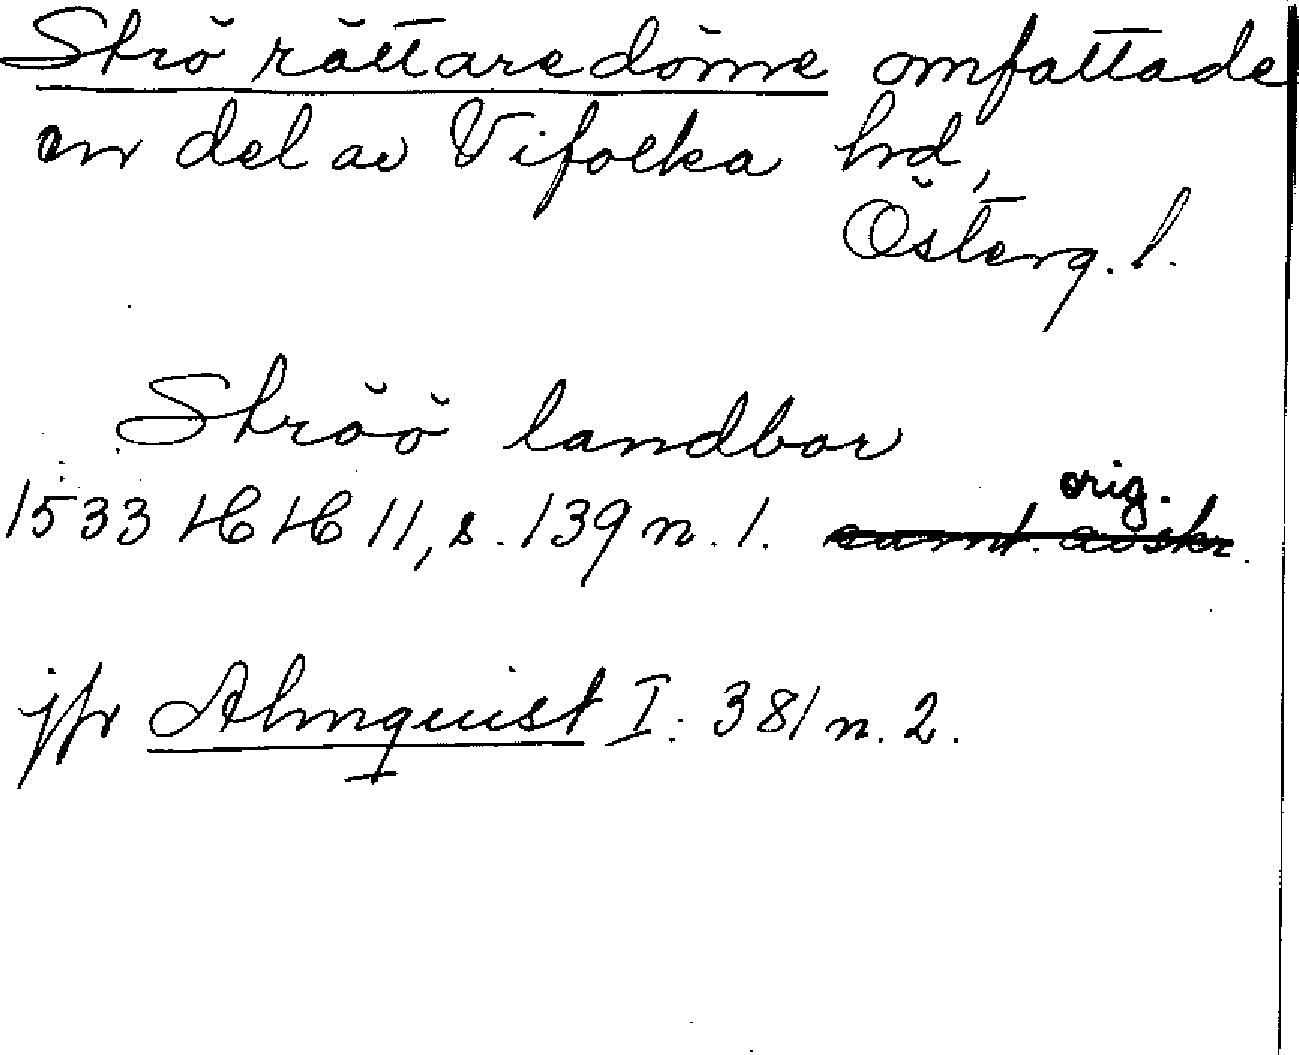 Strö rättaredöme omfattade
en del av Vifolka hrd,
Österg. l.
Ströö landbor
orig.
1533 HH 11, s. 139 n. 1. samt. avskr.
jfr Almquist I: 381 n. 2.
I